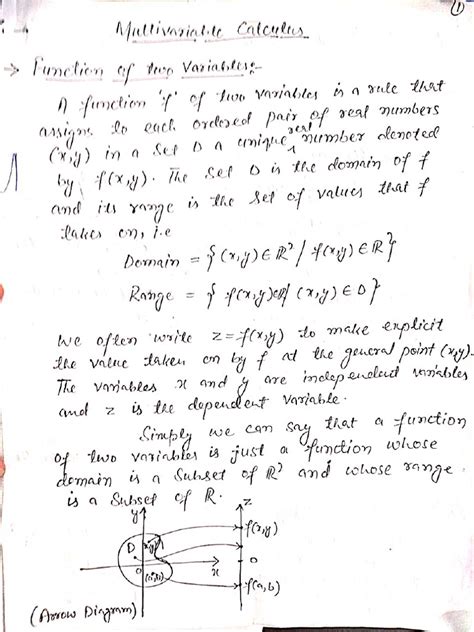 ①
Multivariable Calculus
→ Function of two Variables:-
A function 'f' of two variables is a rule that
assigns to each ordered pair of real numbers
(x,y) in a Set D a unique real number denoted
by f(x,y). The Set D is the domain of f
and its range is the set of values that f
takes on, i.e
Domain = {(x,y) ∈ R² / f(x,y) ∈ R}
Range = { f(x,y)∈R/ (x,y) ∈ D}
We often write z=f(x,y) to make explicit
the value taken on by f at the general point (x,y).
The variables x and y are independent variables
and z is the dependent variable.
Simply we can say that a function
of two variables is just a function whose
domain is a Subset of R² and whose range
is a Subset of R.
y z
D (x,y) f(x,y)
0 x 0
(a,b) f(a,b)
(Arrow Diagram)